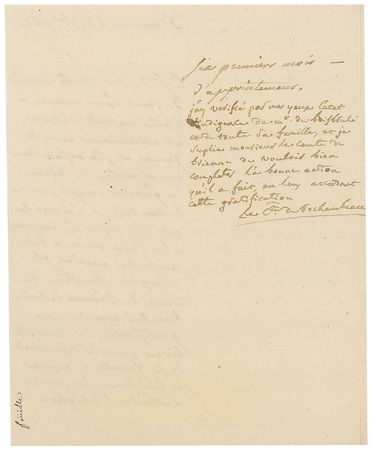 Six premiers mois —
d'appointemens.
j'ay verifié par mes yeux l'etat
d'indigence de mr. de
et de toute sa famille, et je
suplie monsieur le comte de
brienne de vouloir bien
completer la bonne action
qu'il a fait en leur accordant
cette gratification
Le Cte. de Rochambeau